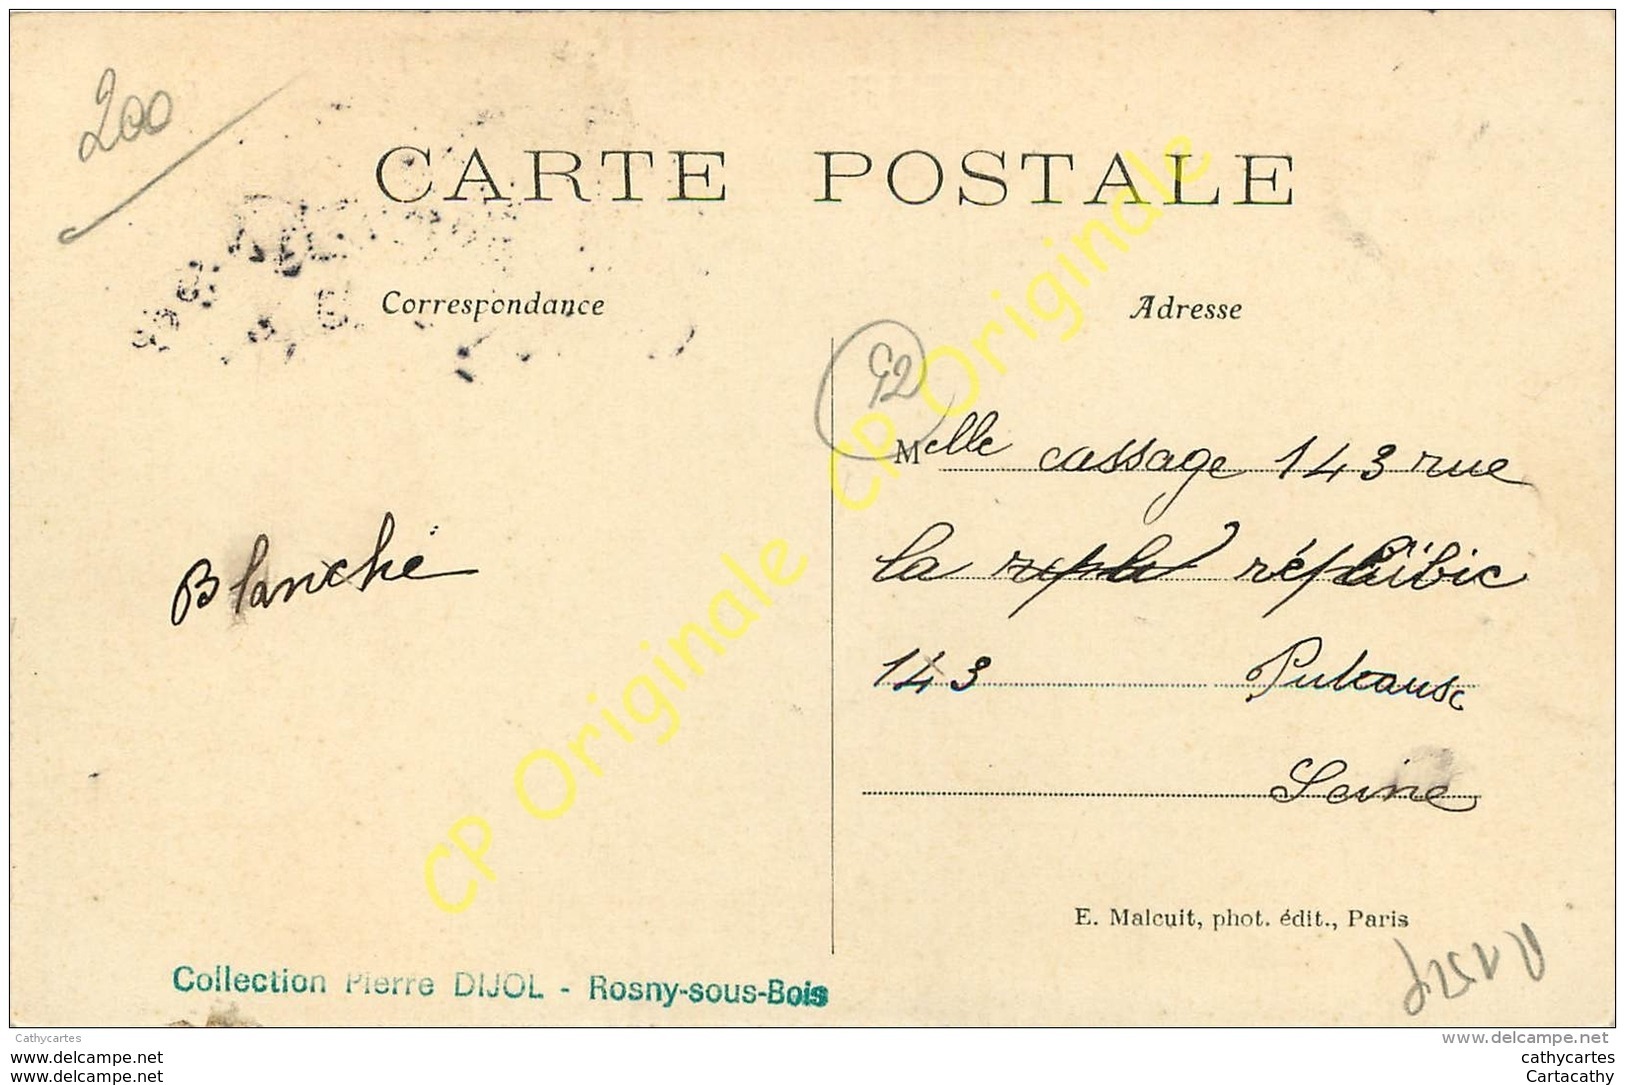 200
CARTE POSTALE
Correspondance
Adresse
92
Melle cassage 143 rue
la répuibic
143 Puteause
Seine
Blanche
E. Malcuit, phot. édit., Paris
Collection Pierre DIJOL - Rosny-sous-Bois
CP Originale CP Originale
Cathycartes
www.delcampe.net
www.delcampe.net
www.delcampe.net
cathycartes
Cartacathy